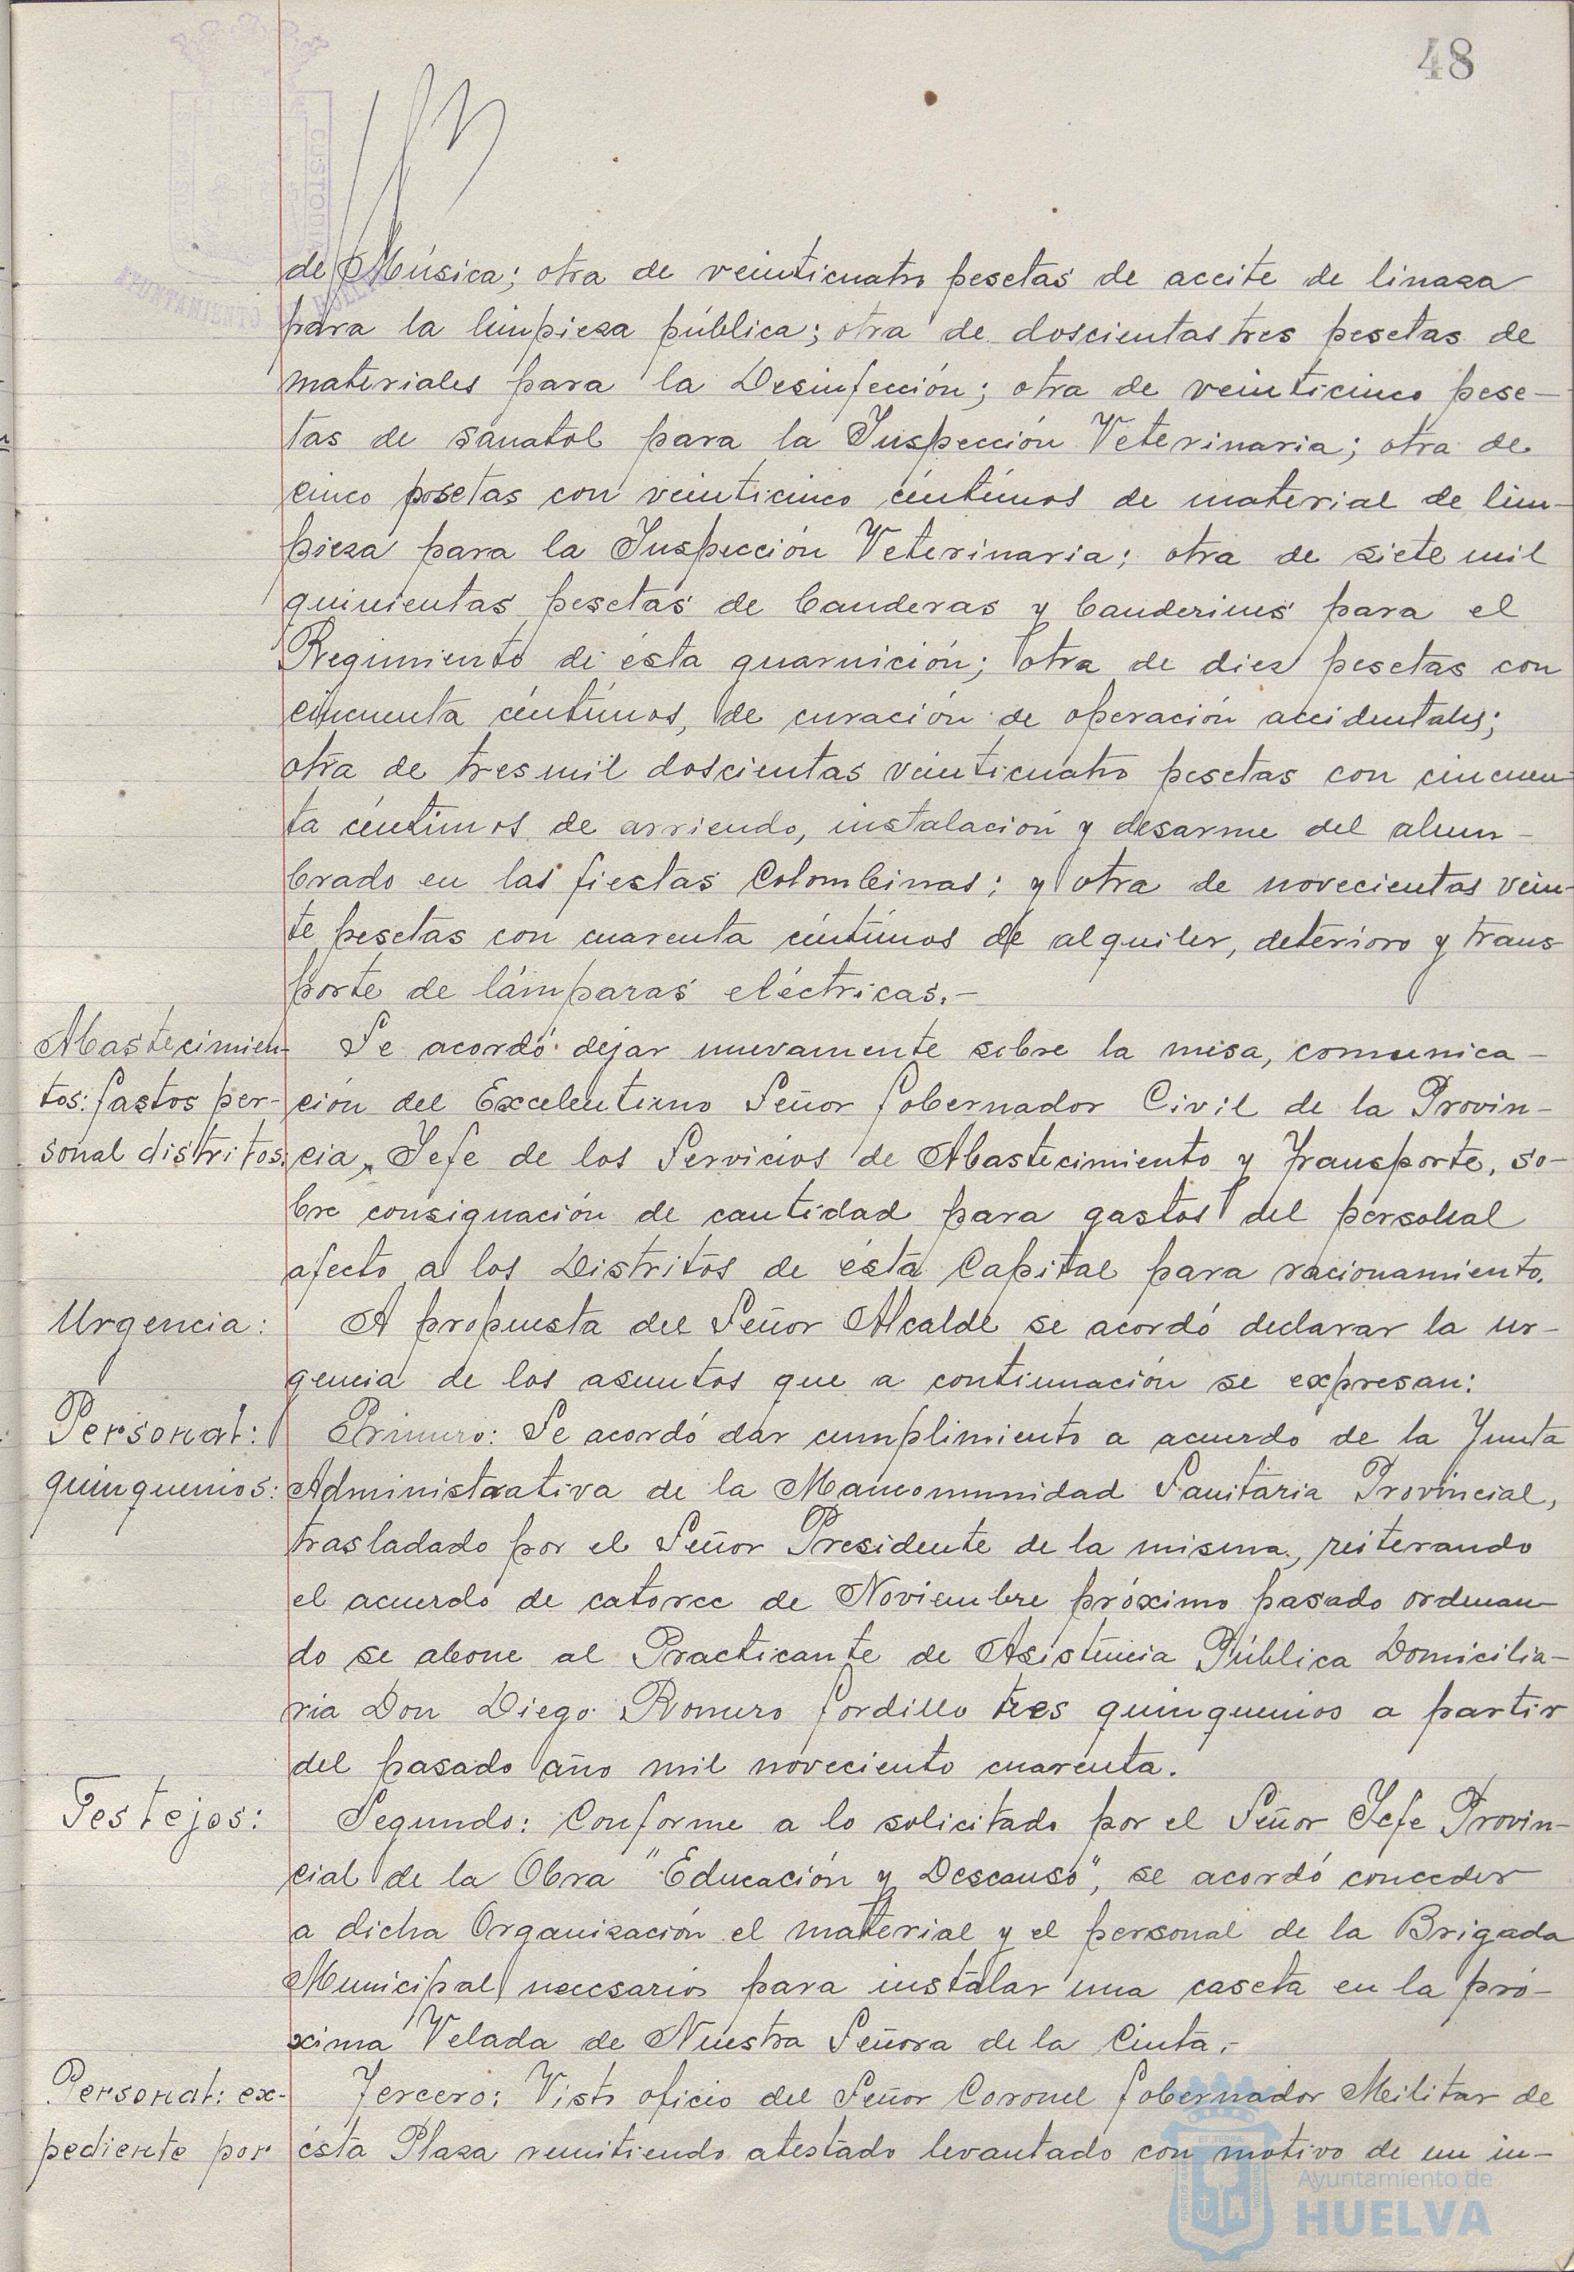 48
de Música; otra de veinticuatro pesetas de aceite de linaza
para la limpieza pública; otra de doscientas tres pesetas de
materiales para la Desinfección; otra de veinticinco pese-
tas de sanatol para la Inspección Veterinaria; otra de
cinco pesetas con veinticinco céntimos de material de lim-
pieza para la Inspección Veterinaria; otra de siete mil
quinientas pesetas de banderas y banderines para el
Regimiento de ésta guarnición; otra de diez pesetas con
cincuenta céntimos, de curación de operación accidentales;
otra de tres mil doscientas veinticuatro pesetas con cincuen-
ta céntimos de arriendo, instalación y desarme del alum-
brado en las fiestas Colombinas; y otra de novecientas vein-
te pesetas con cuarenta céntimos de alquiler, deterioro y trans-
porte de lámparas eléctricas.-
Abastecimien-
tos: gastos per-
sonal distritos:
Se acordó dejar nuevamente sobre la mesa, comunica-
ción del Excelentisimo Señor Gobernador Civil de la Provin-
cia, Jefe de los Servicios de Abastecimiento y Transporte, so-
bre consignación de cantidad para gastos del personal
afecto a los Distritos de ésta Capital para racionamiento.
Urgencia:
A propuesta del Señor Alcalde se acordó declarar la ur-
gencia de los asuntos que a continuación se expresan:
Personal:
quinquenios:
Primero: Se acordó dar cumplimiento a acuerdo de la Junta
Administrativa de la Mancomunidad Sanitaria Provincial,
trasladado por el Señor Presidente de la misma, reiterando
el acuerdo de catorce de Noviembre próximo pasado ordenan-
do se abone al Practicante de Asistencia Pública Domicilia-
ria Don Diego Romero Gordillo tres quinquenios a partir
del pasado año mil noveciento cuarenta.
Festejos:
Segundo: Conforme a lo solicitado por el Señor Jefe Provin-
cial de la Obra "Educación y Descanso", se acordó conceder
a dicha Organización el material y el personal de la Brigada
Municipal necesarios para instalar una caseta en la pró-
xima Velada de Nuestra Señora de la Cinta.-
Personal: ex-
pediente por
Tercero: Visto oficio del Señor Coronel Gobernador Militar de
ésta Plaza remitiendo atestado levantado con motivo de un in-
Ayuntamiento de
HUELVA